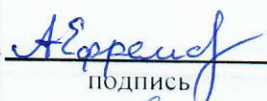 АЕфремов
подпись